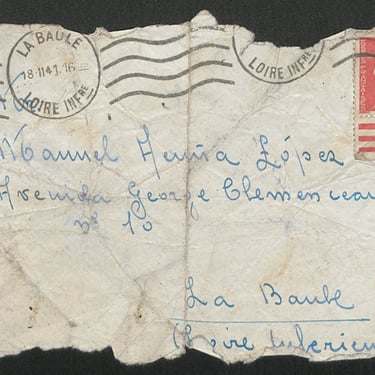 LA BAULE
18-11 41. 16
LOIRE INFRE
LOIRE INFRE
Manuel
López
Avenida George Clemenceau
nº 10
La Baule
(Loire Inferieur